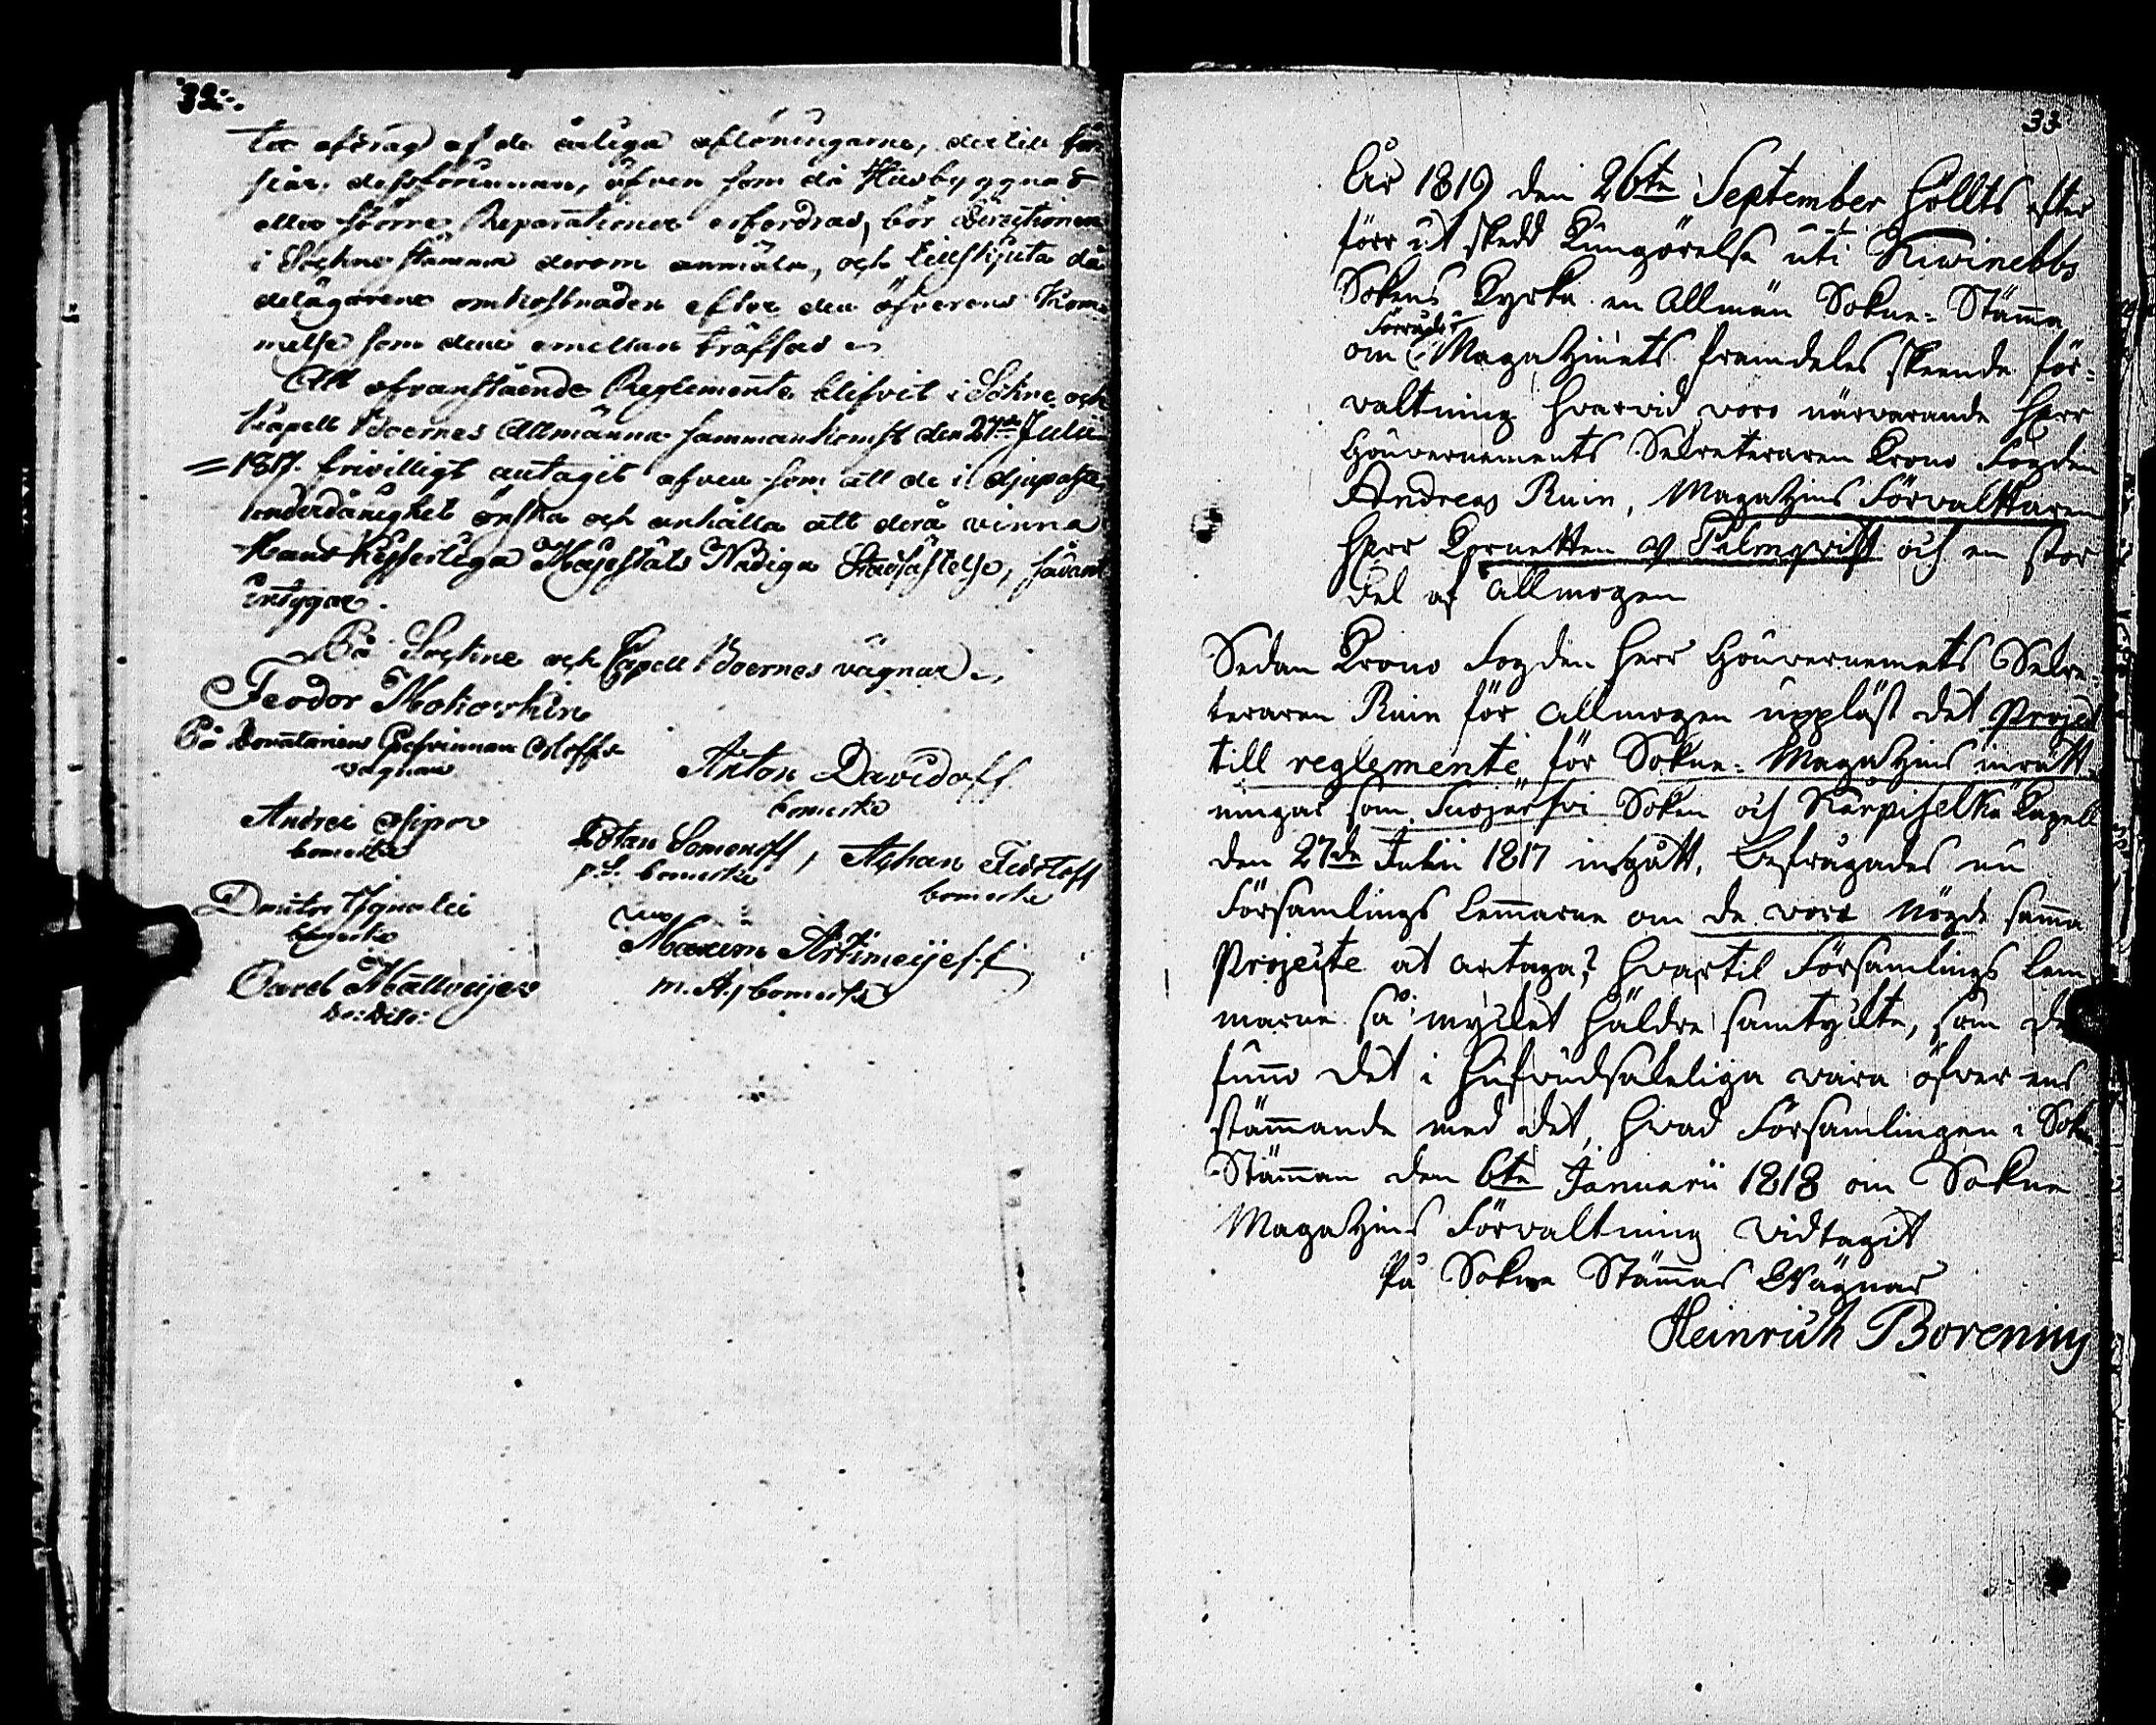 32.
ter afdrag af de årliga aflöningarne, dertill för
slår. dessförinnan, äfven som då Husbyggnad
eller större Reparationer erfordras, bör Directionen
i Sockne stämma derom anmäla, och tillskjuta då
delägarene omkostnaden efter den öfverens kom-
melse som dem emellan träffad
Att ofvanstående Reglemente blifvit i Sockne och
Kapell Boernes Allmänna sammankomst den 27de Julii
1817. frivilligt antagit äfven som att de i djupaste
underdånighet önska och anhålla att derå vinna
Hans Kejserliga Majestäts Nådiga Stadfästelse, sådant
intygar.
På Sockne och Capell Boernes vägnar
Feodor Mokowkin
På Donatariens Grefvinnan Orloffs
vägnar
Anton Davidoff
bomerke
Andrei Osipov
bomerke
Potan Semenoff, Aphan Fedotoff
p.S. bomerke
bomerke
Dmitri Ignatei
bomerke
Maxim Artimeijeff
m. A. bomerke
Carel Mattveijew
do: dito:
33
År 1819 den 26te September hölltes efter
förr ut skedd Kungörelse uti Kiwinebbs
Sokens Kyrka en Allmän Sokne-Stämma
Förråds
om Magatzinets framdeles skeende för-
valtning hvarvid voro närvarande Herr
Gouvernements Secreteraren Krono Fogden
Andreas Ruin, Magatzins Förvalttaren
Herr Cornetten af Palmqvist och en stor
del af Allmogen
Sedan Krono Fogden Herr Gouvernemets Secre-
teraren Ruin för Allmogen uppläst det Project
till reglemente för Sokne-Magatzins inrätt-
ningar som Suojärfvi Soken och Korpiselkä Capell
den 27de Julii 1817 ingått, befrågades nu
Församlings Lemmarne om de vore nögde samma
Projecte at antaga? hvartil Församlings Lem-
marne så mycket häldre samtyckte, som de
funno det i hufvudsakeliga vara öfver ens
stämmande med det, hvad Församlingen i Sokne
Stämman den 6te Januarii 1818 om Sokne
Magatzins Förvaltning vidtagit
På Sokne Stämmas Wägnar
Heinrich Borening